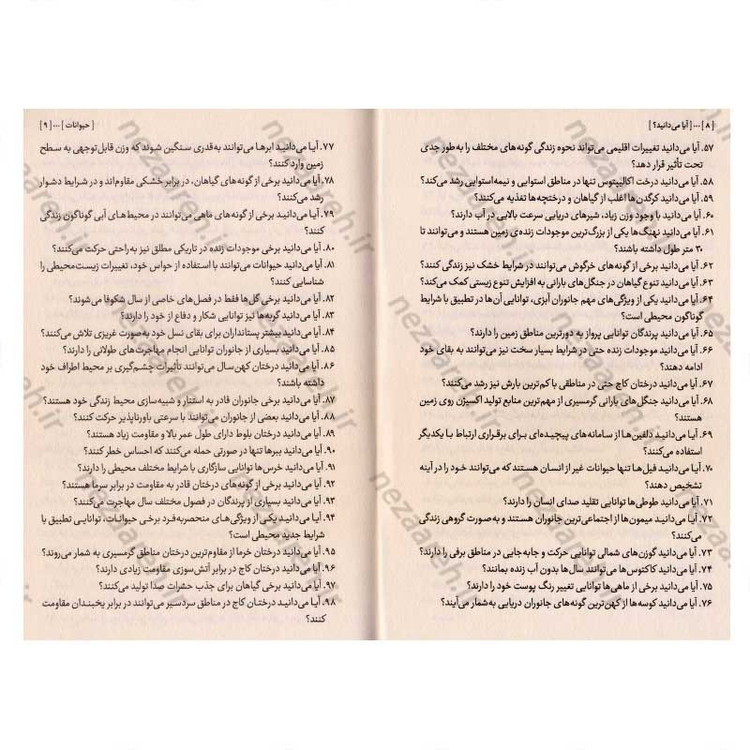 [ ۸ ] ... [ آیا می‌دانید؟ ]
۵۷. آیا می‌دانید تغییرات اقلیمی می‌تواند نحوه زندگی گونه‌های مختلف را به‌طور جدی
تحت تأثیر قرار دهد؟
۵۸. آیا می‌دانید درخت اکالیپتوس تنها در مناطق استوایی و نیمه‌استوایی رشد می‌کند؟
۵۹. آیا می‌دانید کرگدن‌ها اغلب از گیاهان و درختچه‌ها تغذیه می‌کنند؟
۶۰. آیا می‌دانید با وجود وزن زیاد، شیرهای دریایی سرعت بالایی در آب دارند؟
۶۱. آیا می‌دانید نهنگ‌ها یکی از بزرگ‌ترین موجودات زنده‌ی زمین هستند و می‌توانند تا
۳۰ متر طول داشته باشند؟
۶۲. آیا می‌دانید برخی از گونه‌های خرگوش می‌توانند در شرایط خشک نیز زندگی کنند؟
۶۳. آیا می‌دانید تنوع گیاهان در جنگل‌های بارانی به افزایش تنوع زیستی کمک می‌کند؟
۶۴. آیا می‌دانید یکی از ویژگی‌های مهم جانوران آبزی، توانایی آن‌ها در تطبیق با شرایط
گوناگون محیطی است؟
۶۵. آیا می‌دانید پرندگان توانایی پرواز به دورترین مناطق زمین را دارند؟
۶۶. آیا می‌دانید موجودات زنده حتی در شرایط بسیار سخت نیز می‌توانند به بقای خود
ادامه دهند؟
۶۷. آیا می‌دانید درختان کاج حتی در مناطقی با کم‌ترین بارش نیز رشد می‌کنند؟
۶۸. آیا می‌دانید جنگل‌های بارانی گرمسیری از مهم‌ترین منابع تولید اکسیژن روی زمین
هستند؟
۶۹. آیا می‌دانید دلفین‌ها از سامانه‌های پیچیده‌ای برای برقراری ارتباط با یکدیگر
استفاده می‌کنند؟
۷۰. آیا می‌دانید فیل‌ها تنها حیوانات غیر از انسان هستند که می‌توانند خود را در آینه
تشخیص دهند؟
۷۱. آیا می‌دانید طوطی‌ها توانایی تقلید صدای انسان را دارند؟
۷۲. آیا می‌دانید میمون‌ها از اجتماعی‌ترین جانوران هستند و به‌صورت گروهی زندگی
می‌کنند؟
۷۳. آیا می‌دانید گوزن‌های شمالی توانایی حرکت و جابه‌جایی در مناطق برفی را دارند؟
۷۴. آیا می‌دانید کاکتوس‌ها می‌توانند سال‌ها بدون آب زنده بمانند؟
۷۵. آیا می‌دانید برخی از ماهی‌ها توانایی تغییر رنگ پوست خود را دارند؟
۷۶. آیا می‌دانید کوسه‌ها از کهن‌ترین گونه‌های جانوران دریایی به‌شمار می‌آیند؟
[ حیوانات ] ... [ ۹ ]
۷۷. آیا می‌دانید ابرها می‌توانند به‌قدری سنگین شوند که وزن قابل‌توجهی به سطح
زمین وارد کنند؟
۷۸. آیا می‌دانید برخی از گونه‌های گیاهان، در برابر خشکی مقاوم‌اند و در شرایط دشوار
رشد می‌کنند؟
۷۹. آیا می‌دانید برخی از گونه‌های ماهی می‌توانند در محیط‌های آبی گوناگون زندگی
کنند؟
۸۰. آیا می‌دانید برخی موجودات زنده در تاریکی مطلق نیز به‌راحتی حرکت می‌کنند؟
۸۱. آیا می‌دانید حیوانات می‌توانند با استفاده از حواس خود، تغییرات زیست‌محیطی را
شناسایی کنند؟
۸۲. آیا می‌دانید برخی گل‌ها فقط در فصل‌های خاصی از سال شکوفا می‌شوند؟
۸۳. آیا می‌دانید گربه‌ها نیز توانایی شکار و دفاع از خود را دارند؟
۸۴. آیا می‌دانید بیشتر پستانداران برای بقای نسل خود به‌صورت غریزی تلاش می‌کنند؟
۸۵. آیا می‌دانید بسیاری از جانوران توانایی انجام مهاجرت‌های طولانی را دارند؟
۸۶. آیا می‌دانید درختان کهن‌سال می‌توانند تأثیرات چشم‌گیری بر محیط اطراف خود
داشته باشند؟
۸۷. آیا می‌دانید برخی جانوران قادر به استتار و شبیه‌سازی محیط زندگی خود هستند؟
۸۸. آیا می‌دانید بعضی از جانوران می‌توانند با سرعتی باورناپذیر حرکت کنند؟
۸۹. آیا می‌دانید درختان بلوط دارای طول عمر بالا و مقاومت زیاد هستند؟
۹۰. آیا می‌دانید ببرها تنها در صورتی حمله می‌کنند که احساس خطر کنند؟
۹۱. آیا می‌دانید خرس‌ها توانایی سازگاری با شرایط مختلف محیطی را دارند؟
۹۲. آیا می‌دانید برخی از گونه‌های درختان قادر به مقاومت در برابر سرما هستند؟
۹۳. آیا می‌دانید بسیاری از پرندگان در فصول مختلف سال مهاجرت می‌کنند؟
۹۴. آیا می‌دانید یکی از ویژگی‌های منحصربه‌فرد برخی حیوانات، توانایی تطبیق با
شرایط جدید محیطی است؟
۹۵. آیا می‌دانید درختان خرما از مقاوم‌ترین درختان مناطق گرمسیری به شمار می‌روند؟
۹۶. آیا می‌دانید درختان کاج در برابر آتش‌سوزی مقاومت زیادی دارند؟
۹۷. آیا می‌دانید برخی گیاهان برای جذب حشرات صدا تولید می‌کنند؟
۹۸. آیا می‌دانید درختان کاج در مناطق سردسیر می‌توانند در برابر یخبندان مقاومت
کنند؟
nezaareh.ir